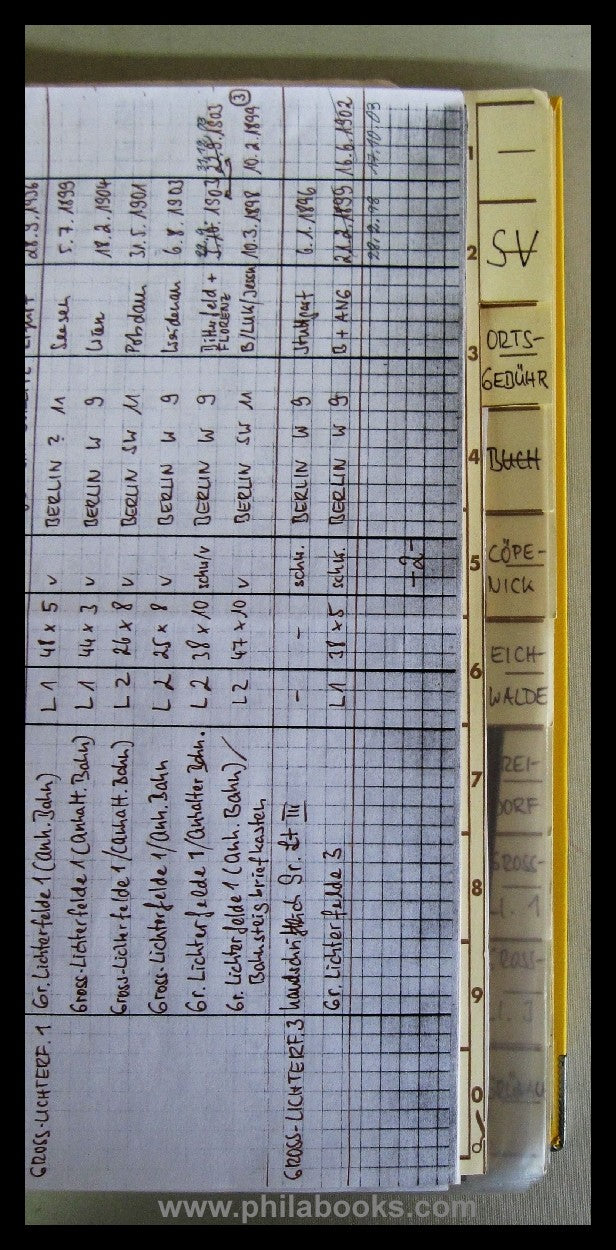 GROSS-LICHTERF. 1 Gr. Lichterfelde 1 (Anh. Bahn) L 1 48 x 5 v BERLIN ? 11 Seesen 5.7.1899
Gross-Lichterfelde 1 (Anhalt. Bahn) L 1 44 x 3 v BERLIN W 9 18.2.1904
Gross-Lichterfelde 1/(Anhalt. Bahn) L 2 26 x 8 v BERLIN SW 11 Potsdam 31.5.1901
Gross-Lichterfelde 1/Anh. Bahn L 2 25 x 8 v BERLIN W 9 6.8.1903
Gr. Lichterfelde 1/Anhalter Bahn. L 2 38 x 10 schw/v BERLIN W 9 Bitterfeld + 1903
FLORENZ
Gr. Lichterfelde 1 (Anh. Bahn)/ L 2 47 x 10 v BERLIN SW 11 B/LUK/Jessen 10.3.1898 10.2.1899 3
Bahnsteigbriefkasten
GROSS-LICHTERF. 3 handschriftlich Gr. Lt III - - schw. BERLIN W 9 Stuttgart 6.1.1896
Gr. Lichterfelde 3 L 1 38 x 5 schw. BERLIN W 9 B + ANG 21.2.1899 16.6.1902
17.10.03
-2-
1
2
3
4
5
6
7
8
9
0
SV
ORTS-
GEBÜHR
BUCH
CÖPE-
NICK
EICH-
WALDE
REI-
DORF
GROSS-
LI. 1
GROSS-
LI. 3
www.philabooks.com